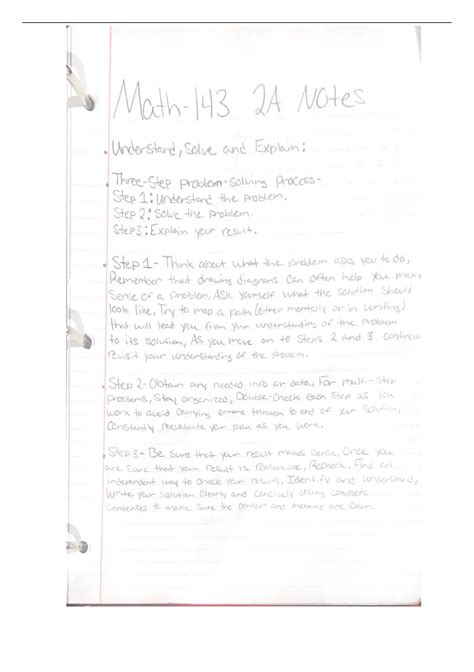 Math-143 2A Notes
• Understand, Solve and Explain:
• Three-Step problem-solving Process-
Step 1: Understand the problem.
Step 2: Solve the problem.
Step 3: Explain your result.
• Step 1- Think about what the problem asks you to do,
Remember that drawing diagrams can often help you make
sense of a problem, Ask yourself what the solution should
look like, Try to map a path (either mentally or in writing)
that will lead you from your understanding of the problem
to its solution, As you move on to Steps 2 and 3. continue
revisit your understanding of the problem.
• Step 2- Obtain any needed info or data, For multi-step
problems, Stay organized, Double-check each step as you
work to avoid carrying errors through to end of your solution,
Constantly reevaluate your plan as you work.
• Step 3- Be sure that your result makes sense, Once you
are sure that your result is reasonable, Recheck, Find an
independent way to check your results, Identify and understand,
Write your solution clearly and concisely using complete
sentences to make sure the context and meaning are clear.